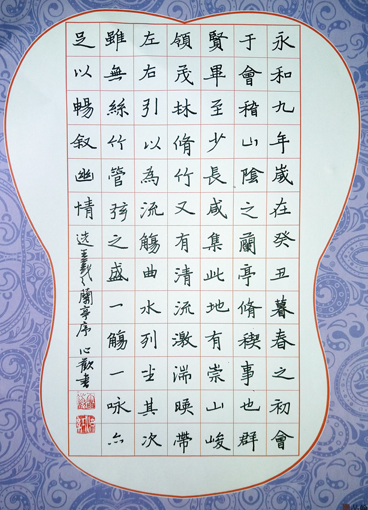 永和九年歲在癸丑暮春之初會
于會稽山陰之蘭亭脩稧事也群
賢畢至少長咸集此地有崇山峻
領茂林脩竹又有清流激湍暎帶
左右引以為流觴曲水列坐其次
雖無絲竹管弦之盛一觴一咏亦
足以暢叙幽情
选王羲之蘭亭序 心歡書